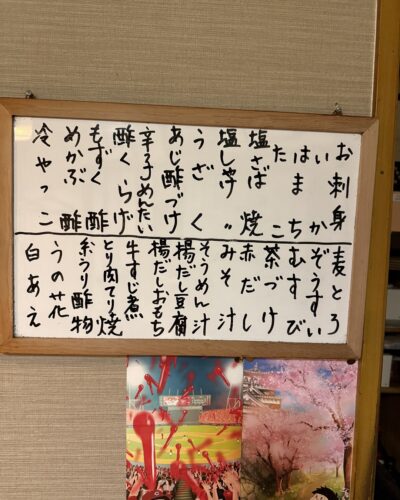 お刺身
いか
はまち
たこ
塩さば焼
塩しゃけ〃
うざく
あじ酢づけ
辛子めんたい
酢くらげ
もずく酢
めかぶ酢
冷やっこ
麦とろ
ぞうすい
むすび
茶づけ
赤だし
みそ汁
そうめん汁
揚だし豆腐
揚だしおもち
牛すじ煮
とり肉てり焼
糸うり酢物
うの花
白あえ